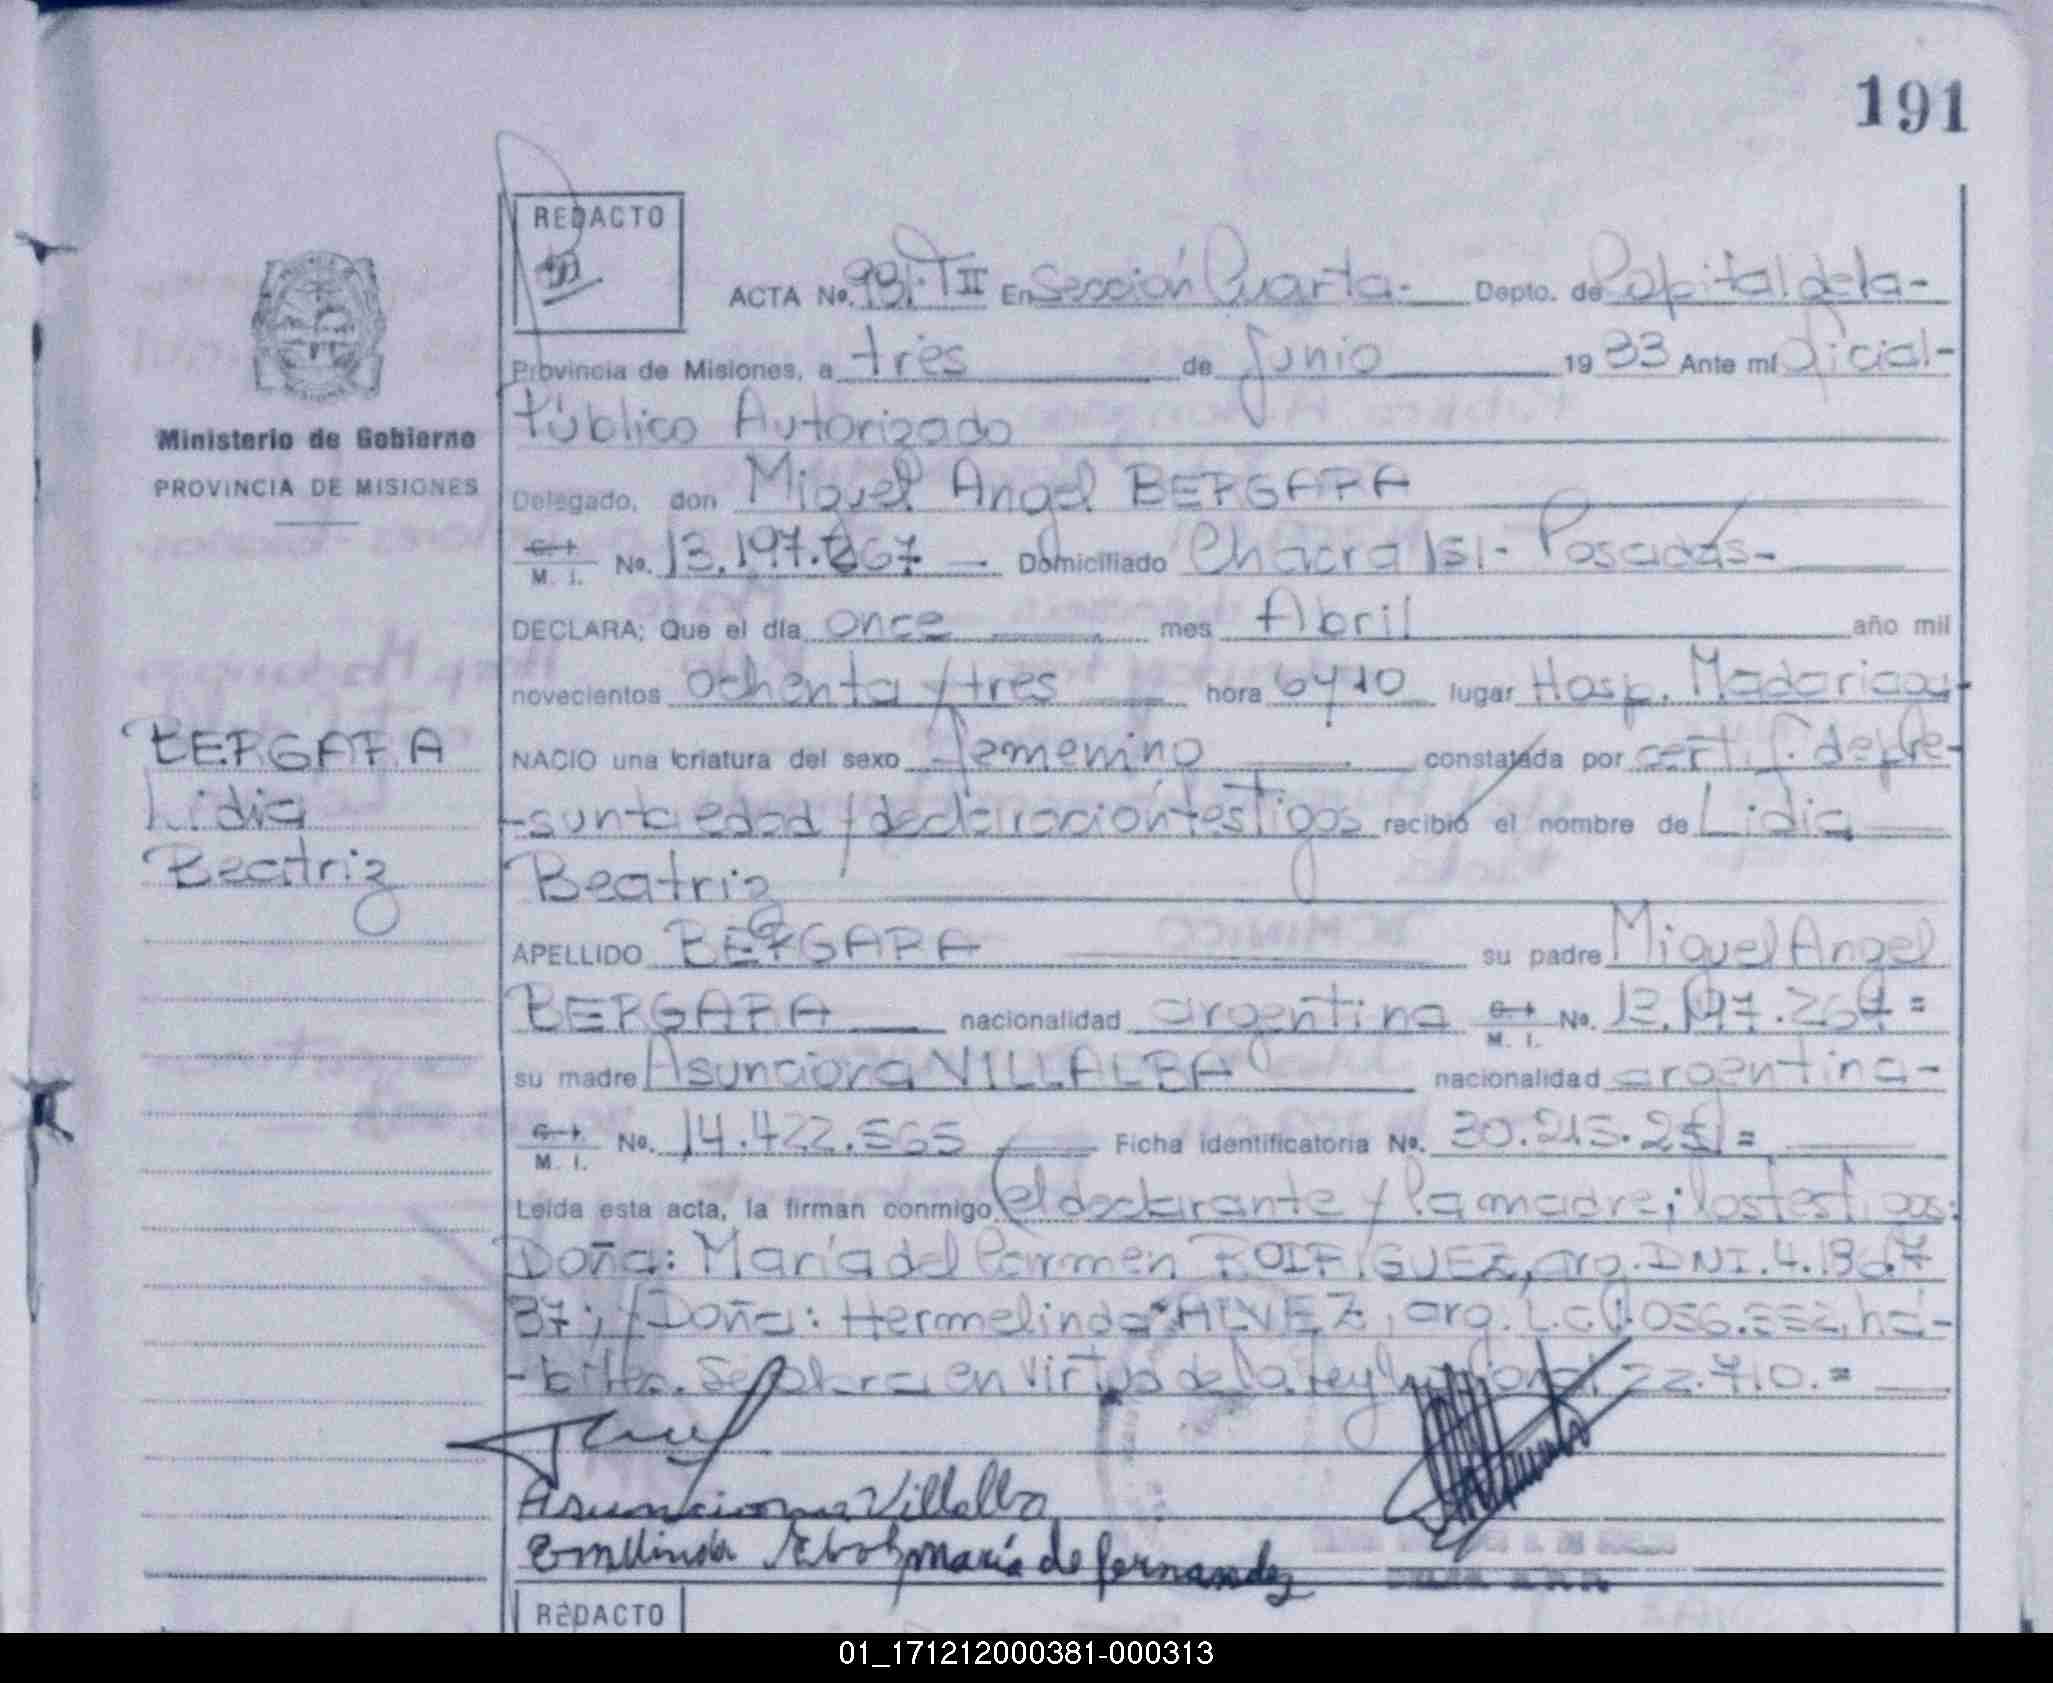 191
REDACTO
ACTA No. 991.TII En Sección Cuarta.- Depto. de Capital de la-
Provincia de Misiones, a tres de Junio 1983 Ante mí Oficial-
Público Autorizado
Ministerio de Gobierno
PROVINCIA DE MISIONES
Delegado, don Miguel Angel BERGARA
C. I. M. I. No. 13.197.267 Domiciliado Chacra 151- Posadas-
DECLARA; Que el día once mes Abril año mil
novecientos ochenta y tres hora 6y10 lugar Hosp. Madariaga-
NACIO una criatura del sexo femenino constatada por certif. de pre-
-sunta edad y declaración testigos recibió el nombre de Lidia
Beatriz
BERGARA
Lidia
Beatriz
APELLIDO BERGARA su padre Miguel Angel
BERGARA nacionalidad argentina C. I. M. I. No. 13.197.267=
su madre Asunciona VILLALBA nacionalidad argentina-
C. I. M. I. No. 14.422.565 Ficha identificatoria No. 30.215.251=
Leída esta acta, la firman conmigo el declarante y la madre; los testigos:
Doña: María del Carmen RODRIGUEZ, arg. DNI. 4.
37; y Doña: Hermelinda ALVEZ, arg. L.C. há-
-biles. Se labra en virtud de la Ley Nacional 22.710.=
Asunciona Villalba
Emilinda maría de fernandez
REDACTO
01_171212000381-000313